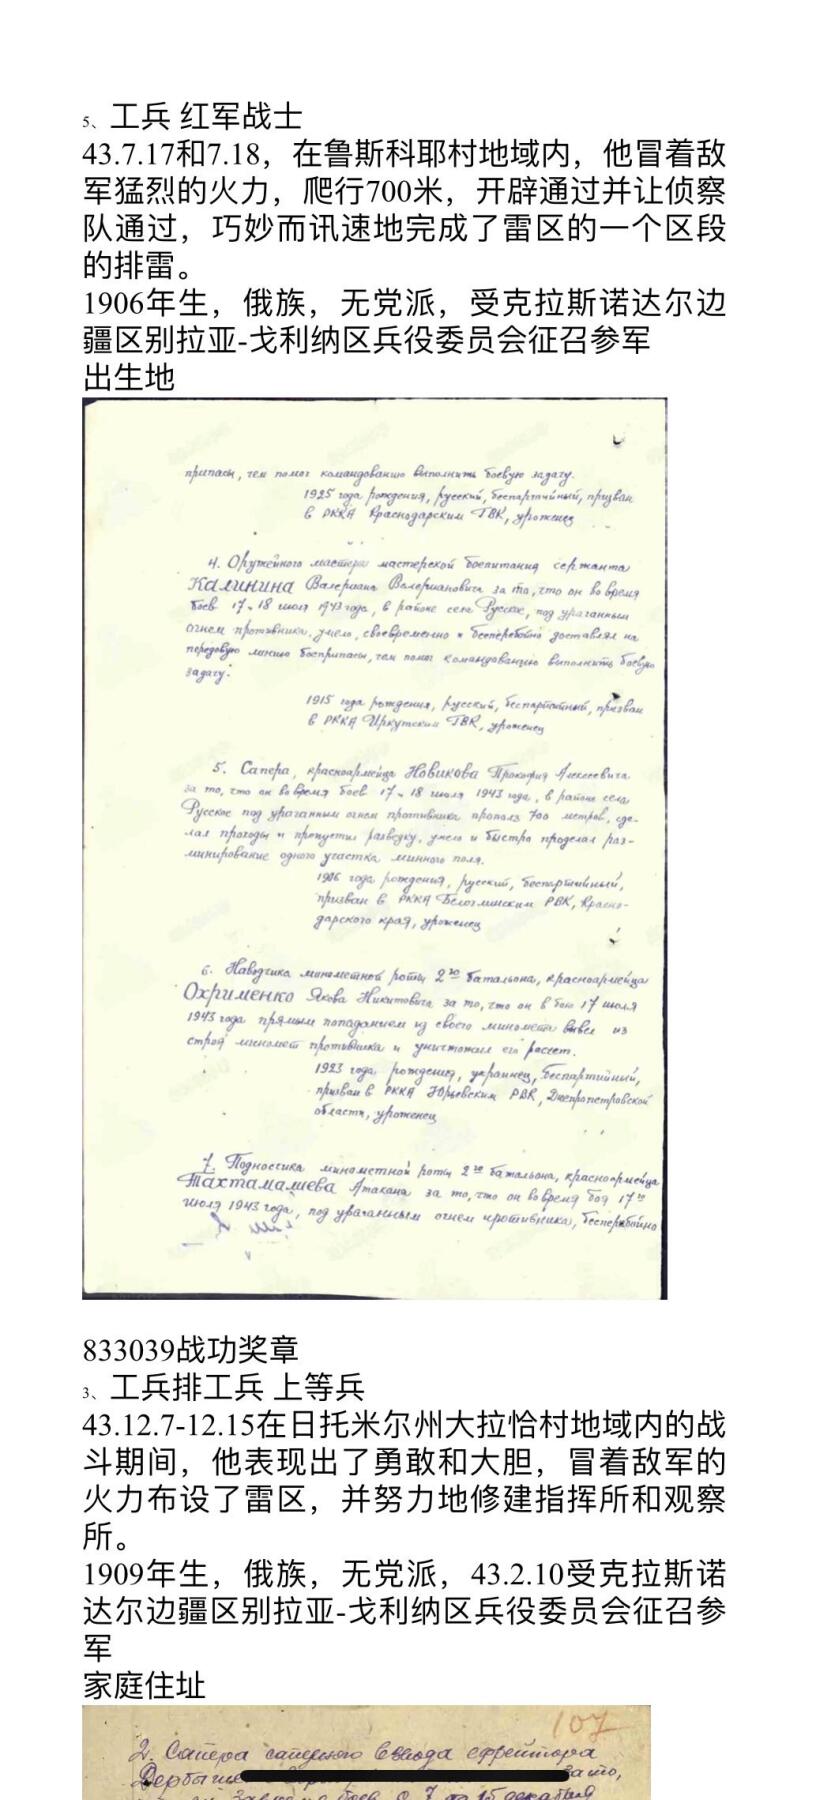 5、工兵 红军战士
43.7.17和7.18，在鲁斯科耶村地域内，他冒着敌
军猛烈的火力，爬行700米，开辟通过并让侦察
队通过，巧妙而讯速地完成了雷区的一个区段
的排雷。
1906年生，俄族，无党派，受克拉斯诺达尔边
疆区别拉亚-戈利纳区兵役委员会征召参军
出生地
припасы, чем помог командованию выполнить боевую задачу.
1925 года рождения, русский, беспартийный, призван
в РККА Краснодарским ГВК, уроженец
4. Оружейного мастера мастерской боепитания сержанта
Калинина Валериана Валериановича за то, что он во время
боев 17-18 июля 1943 года, в районе села Русское, под ураганным
огнем противника, умело, своевременно и бесперебойно доставлял на
передовую линию боеприпасы, чем помог командованию выполнить боевую
задачу.
1915 года рождения, русский, беспартийный, призван
в РККА Иркутским ГВК, уроженец
5. Сапера, красноармейца Новикова Прокофия Алексеевича
за то, что он во время боев 17-18 июля 1943 года, в районе села
Русское под ураганным огнем противника прополз 700 метров, сде-
лал проходы и пропустил разведку, умело и быстро проделал раз-
минирование одного участка минного поля.
1906 года рождения, русский, беспартийный,
призван в РККА Белоглинским РВК, Красно-
дарского края, уроженец
6. Наводчика минометной роты 2го батальона, красноармейца
Охрименко Якова Никитовича за то, что он в бою 17 июля
1943 года прямым попаданием из своего миномета вывел из
строя миномет противника и уничтожил его расчет.
1923 года рождения, украинец, беспартийный,
призван в РККА Юрьевским РВК, Днепропетровской
области, уроженец
7. Подносчика минометной роты 2го батальона, красноармейца
Тахтамашева Атакана за то, что он во время боя 17го
июля 1943 года, под ураганным огнем противника, бесперебойно
833039战功奖章
3、工兵排工兵 上等兵
43.12.7-12.15在日托米尔州大拉恰村地域内的战
斗期间，他表现出了勇敢和大胆，冒着敌军的
火力布设了雷区，并努力地修建指挥所和观察
所。
1909年生，俄族，无党派，43.2.10受克拉斯诺
达尔边疆区别拉亚-戈利纳区兵役委员会征召参
军
家庭住址
107
2. Сапера саперного взвода ефрейтора
за то,